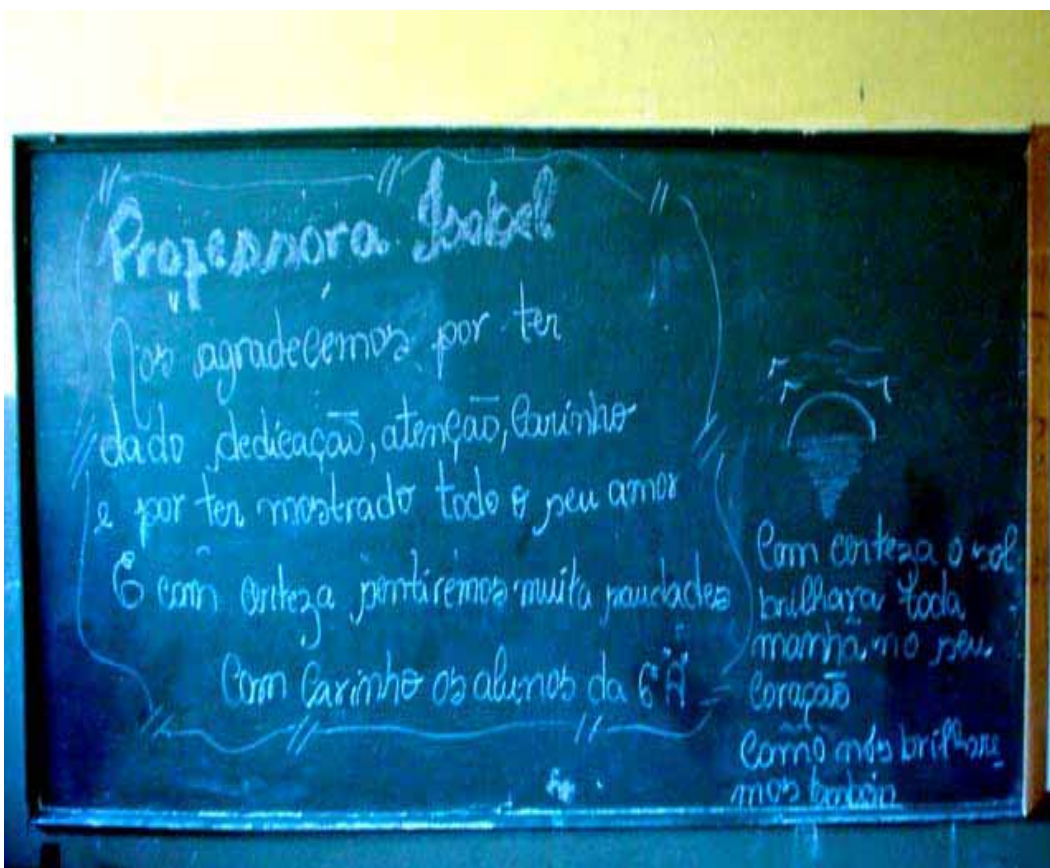 Professora Isabel
Nos agradecemos por ter
dado dedicação, atenção, Carinho
e por ter mostrado todo o seu amor
E com certeza sentiremos muita saudades
Com Carinho os alunos da 6ª "A"
Com certeza o sol
brilhara toda
manhã no seu
Coração
Como nós brilhare
mos também